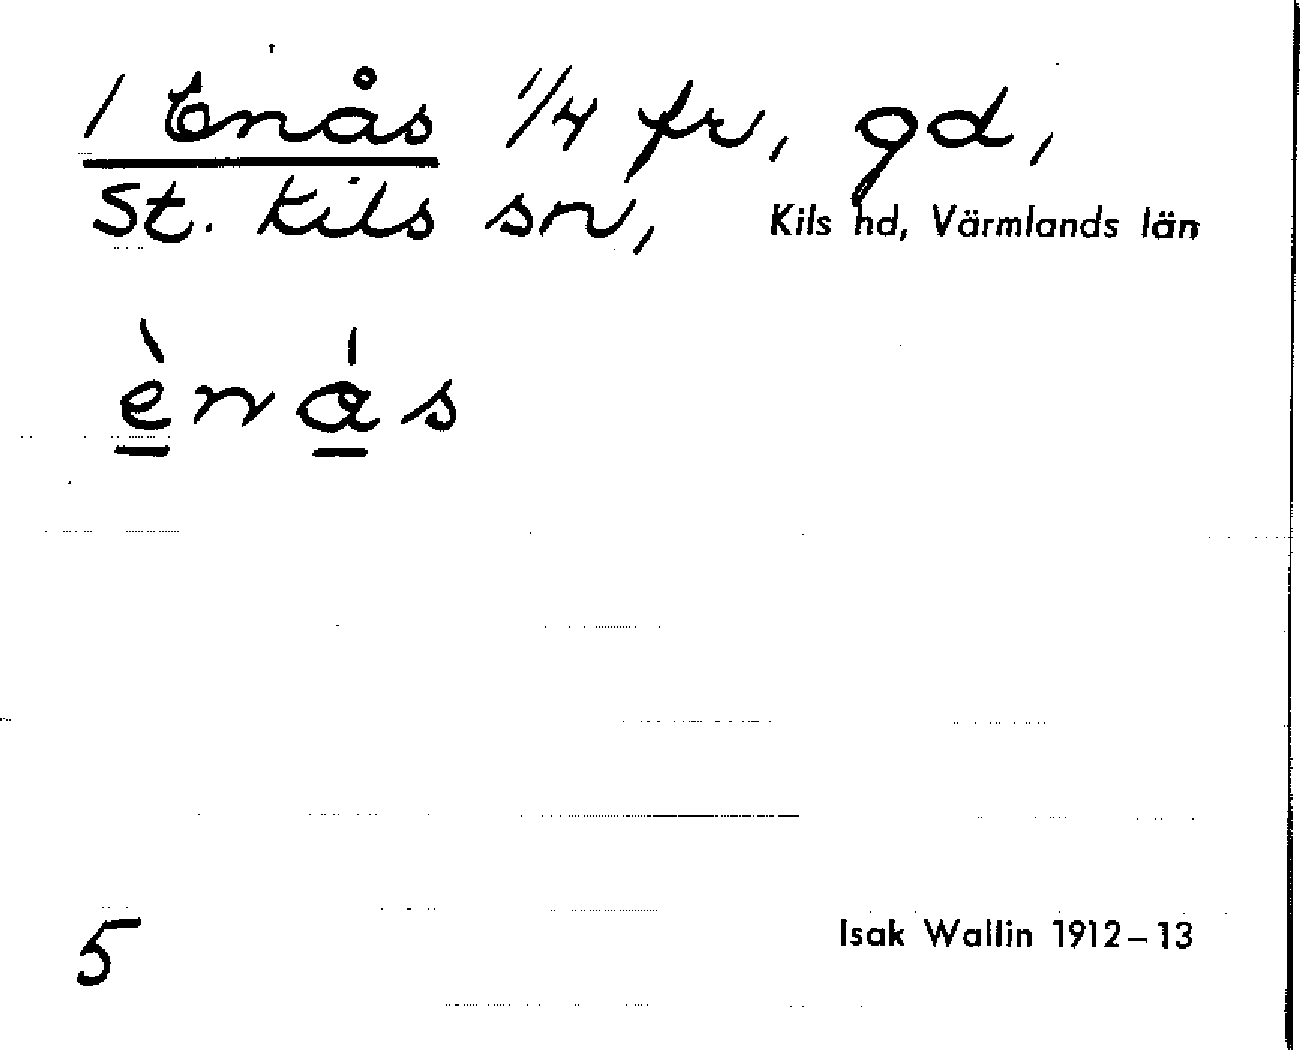 1 Enås 1/4 fr, gd,
St. Kils sn, Kils hd, Värmlands län
è̱ná̱s
5
Isak Wallin 1912–13